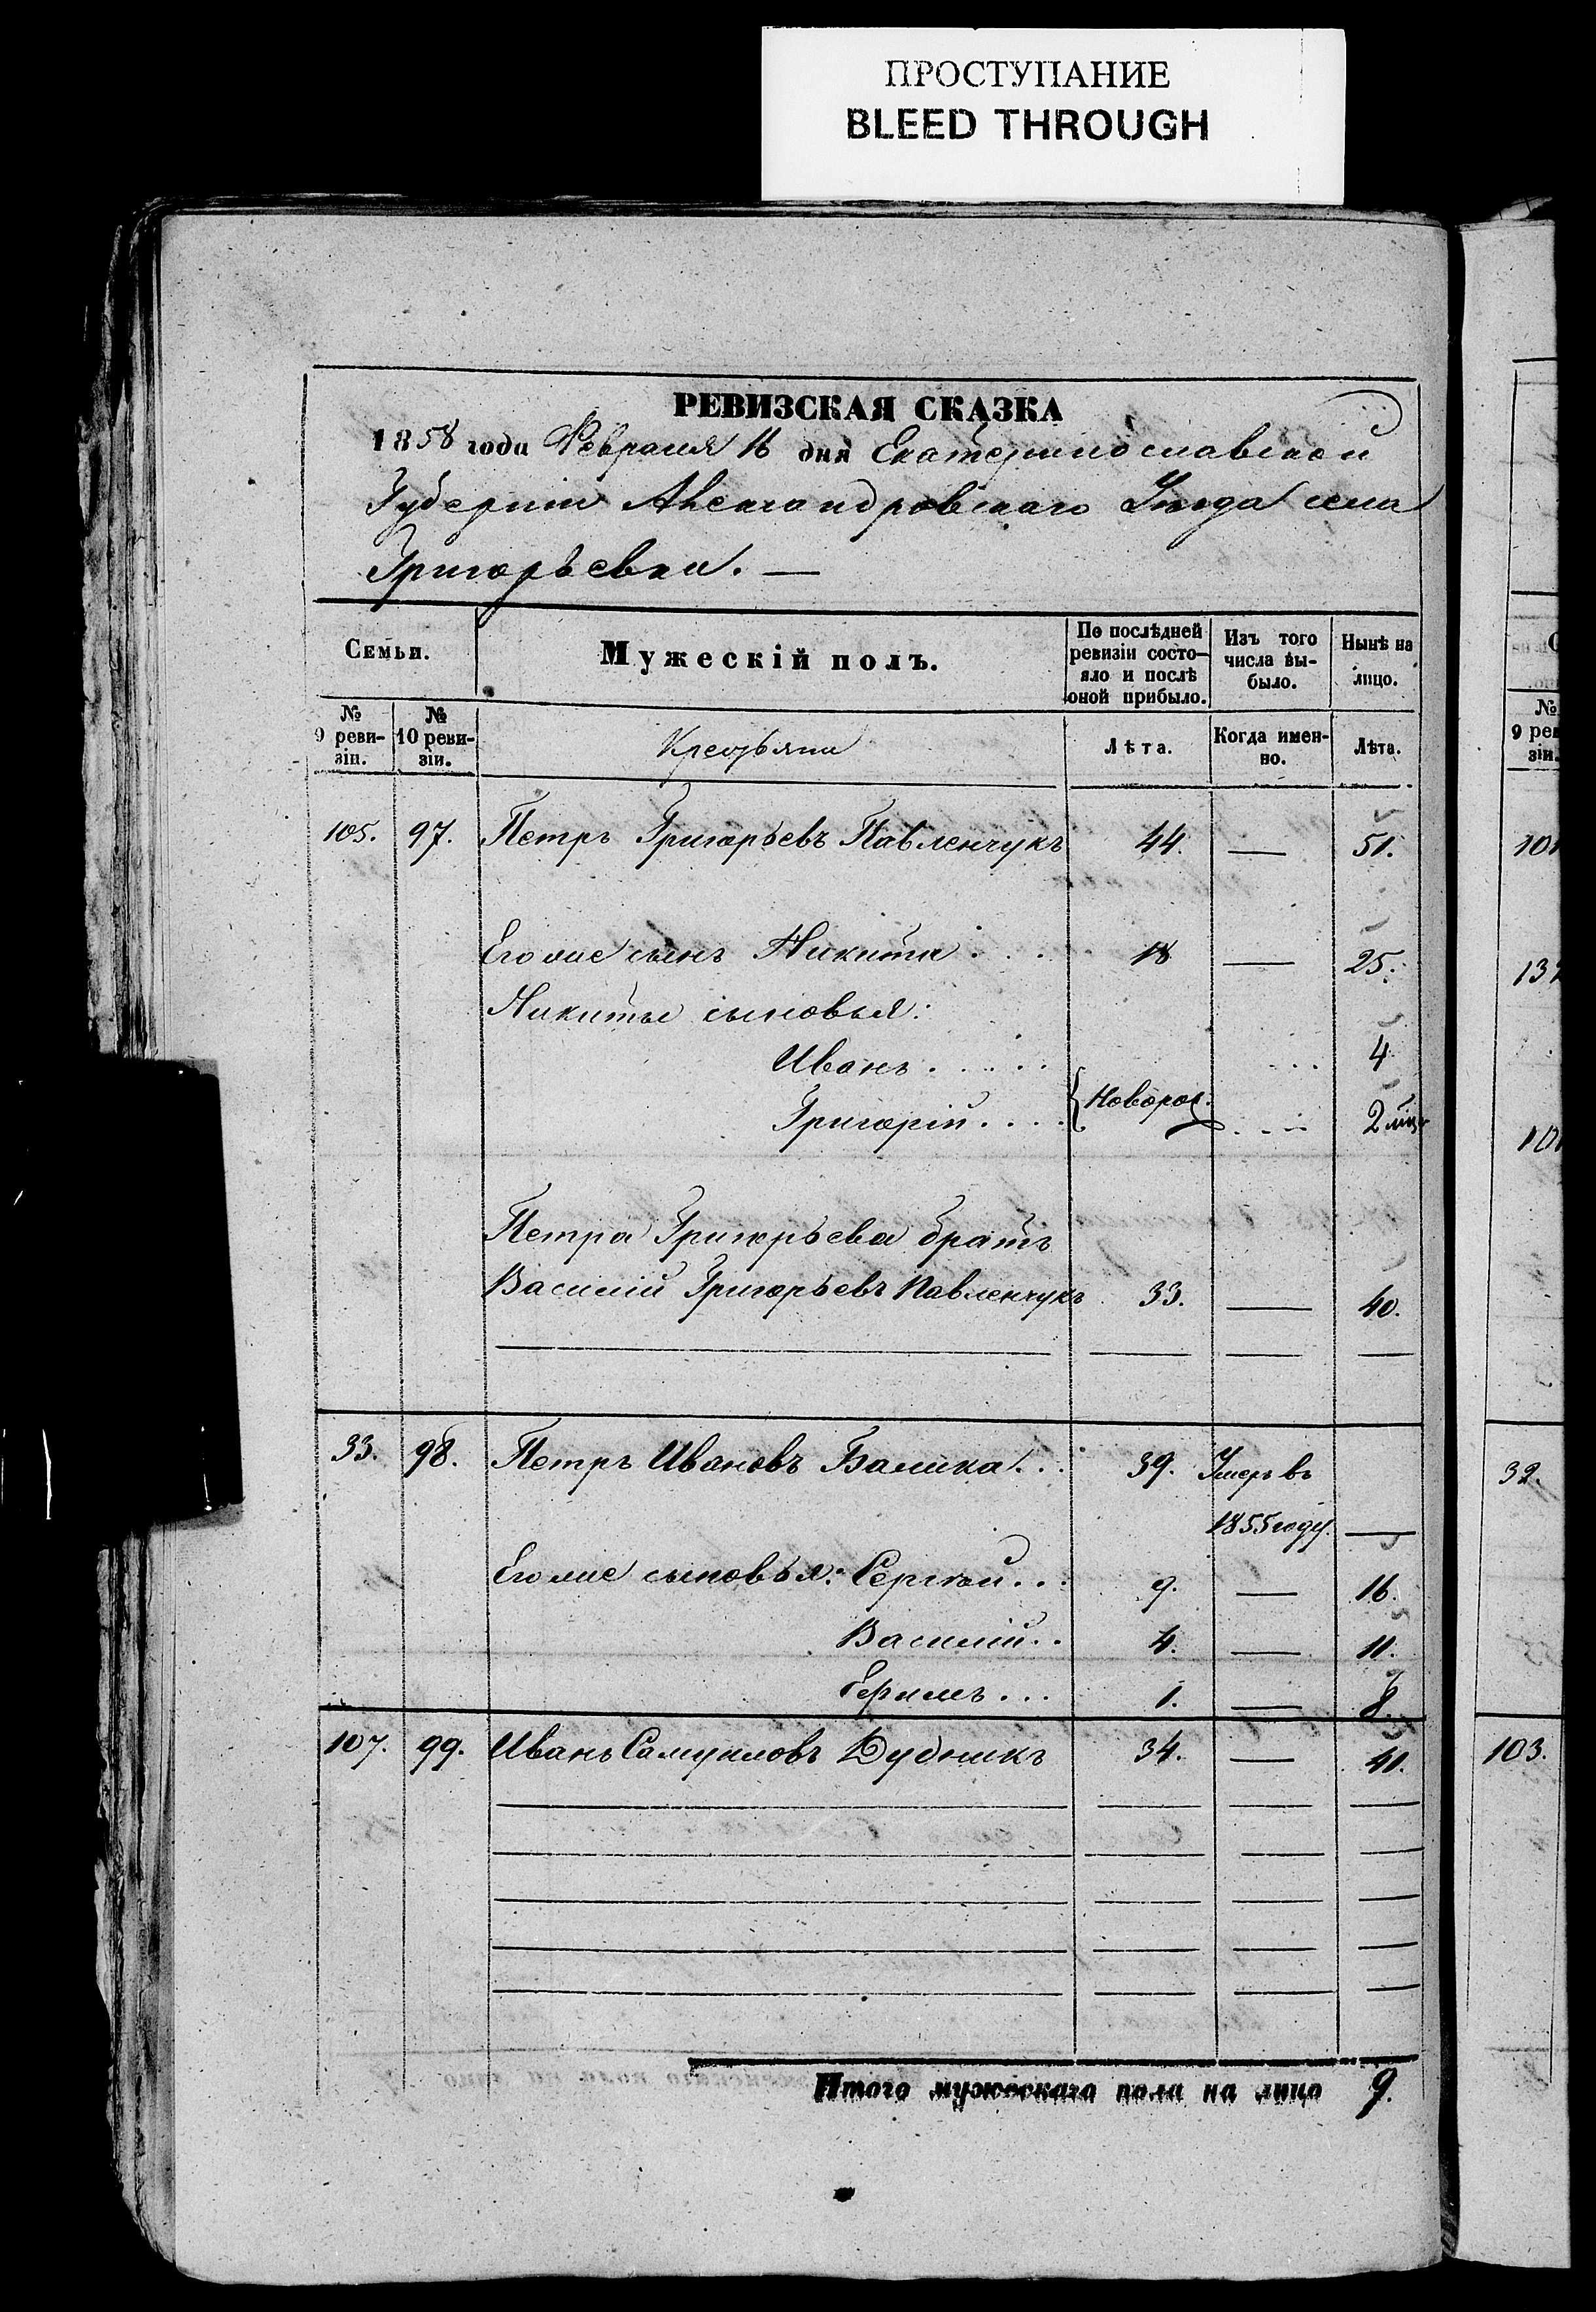 ПРОСТУПАНИЕ
BLEED THROUGH
РЕВИЗСКАЯ СКАЗКА
1858 года Февраля 16 дня Екатеринославской
Губерніи Александровскаго Уѣзда села
Григорьевки. —
Семьи.
Мужескій полъ.
По послѣдней ревизіи состояло и послѣ оной прибыло.
Изъ того числа выбыло.
Нынѣ на лицо.
№ 9 ревизіи.
№ 10 ревизіи.
Крестьяни
Лѣта.
Когда именно.
Лѣта.
105. 97. Петръ Григорьевъ Павленчукъ 44. — 51.
Его же сынъ Никита . . . 18 — 25.
Никиты сыновья:
Иванъ . . . . . . . . 4
Григорій . . . . { Новорож. . . . 2 мѣс.
Петра Григорьева братъ
Василій Григорьевъ Павленчукъ 33. — 40.
33. 98. Петръ Ивановъ Балика . . . 39. Умеръ въ
1855 году. —
Его же сыновья: Сергѣй . . . 9. — 16.
Василій . . 4. — 11.
Ефимъ . . . 1. — 8.
107. 99. Иванъ Самуиловъ Дудникъ 34. — 41.
Итого мужескаго пола на лицо 9.
№
9 рев
зіи.
32.
103.